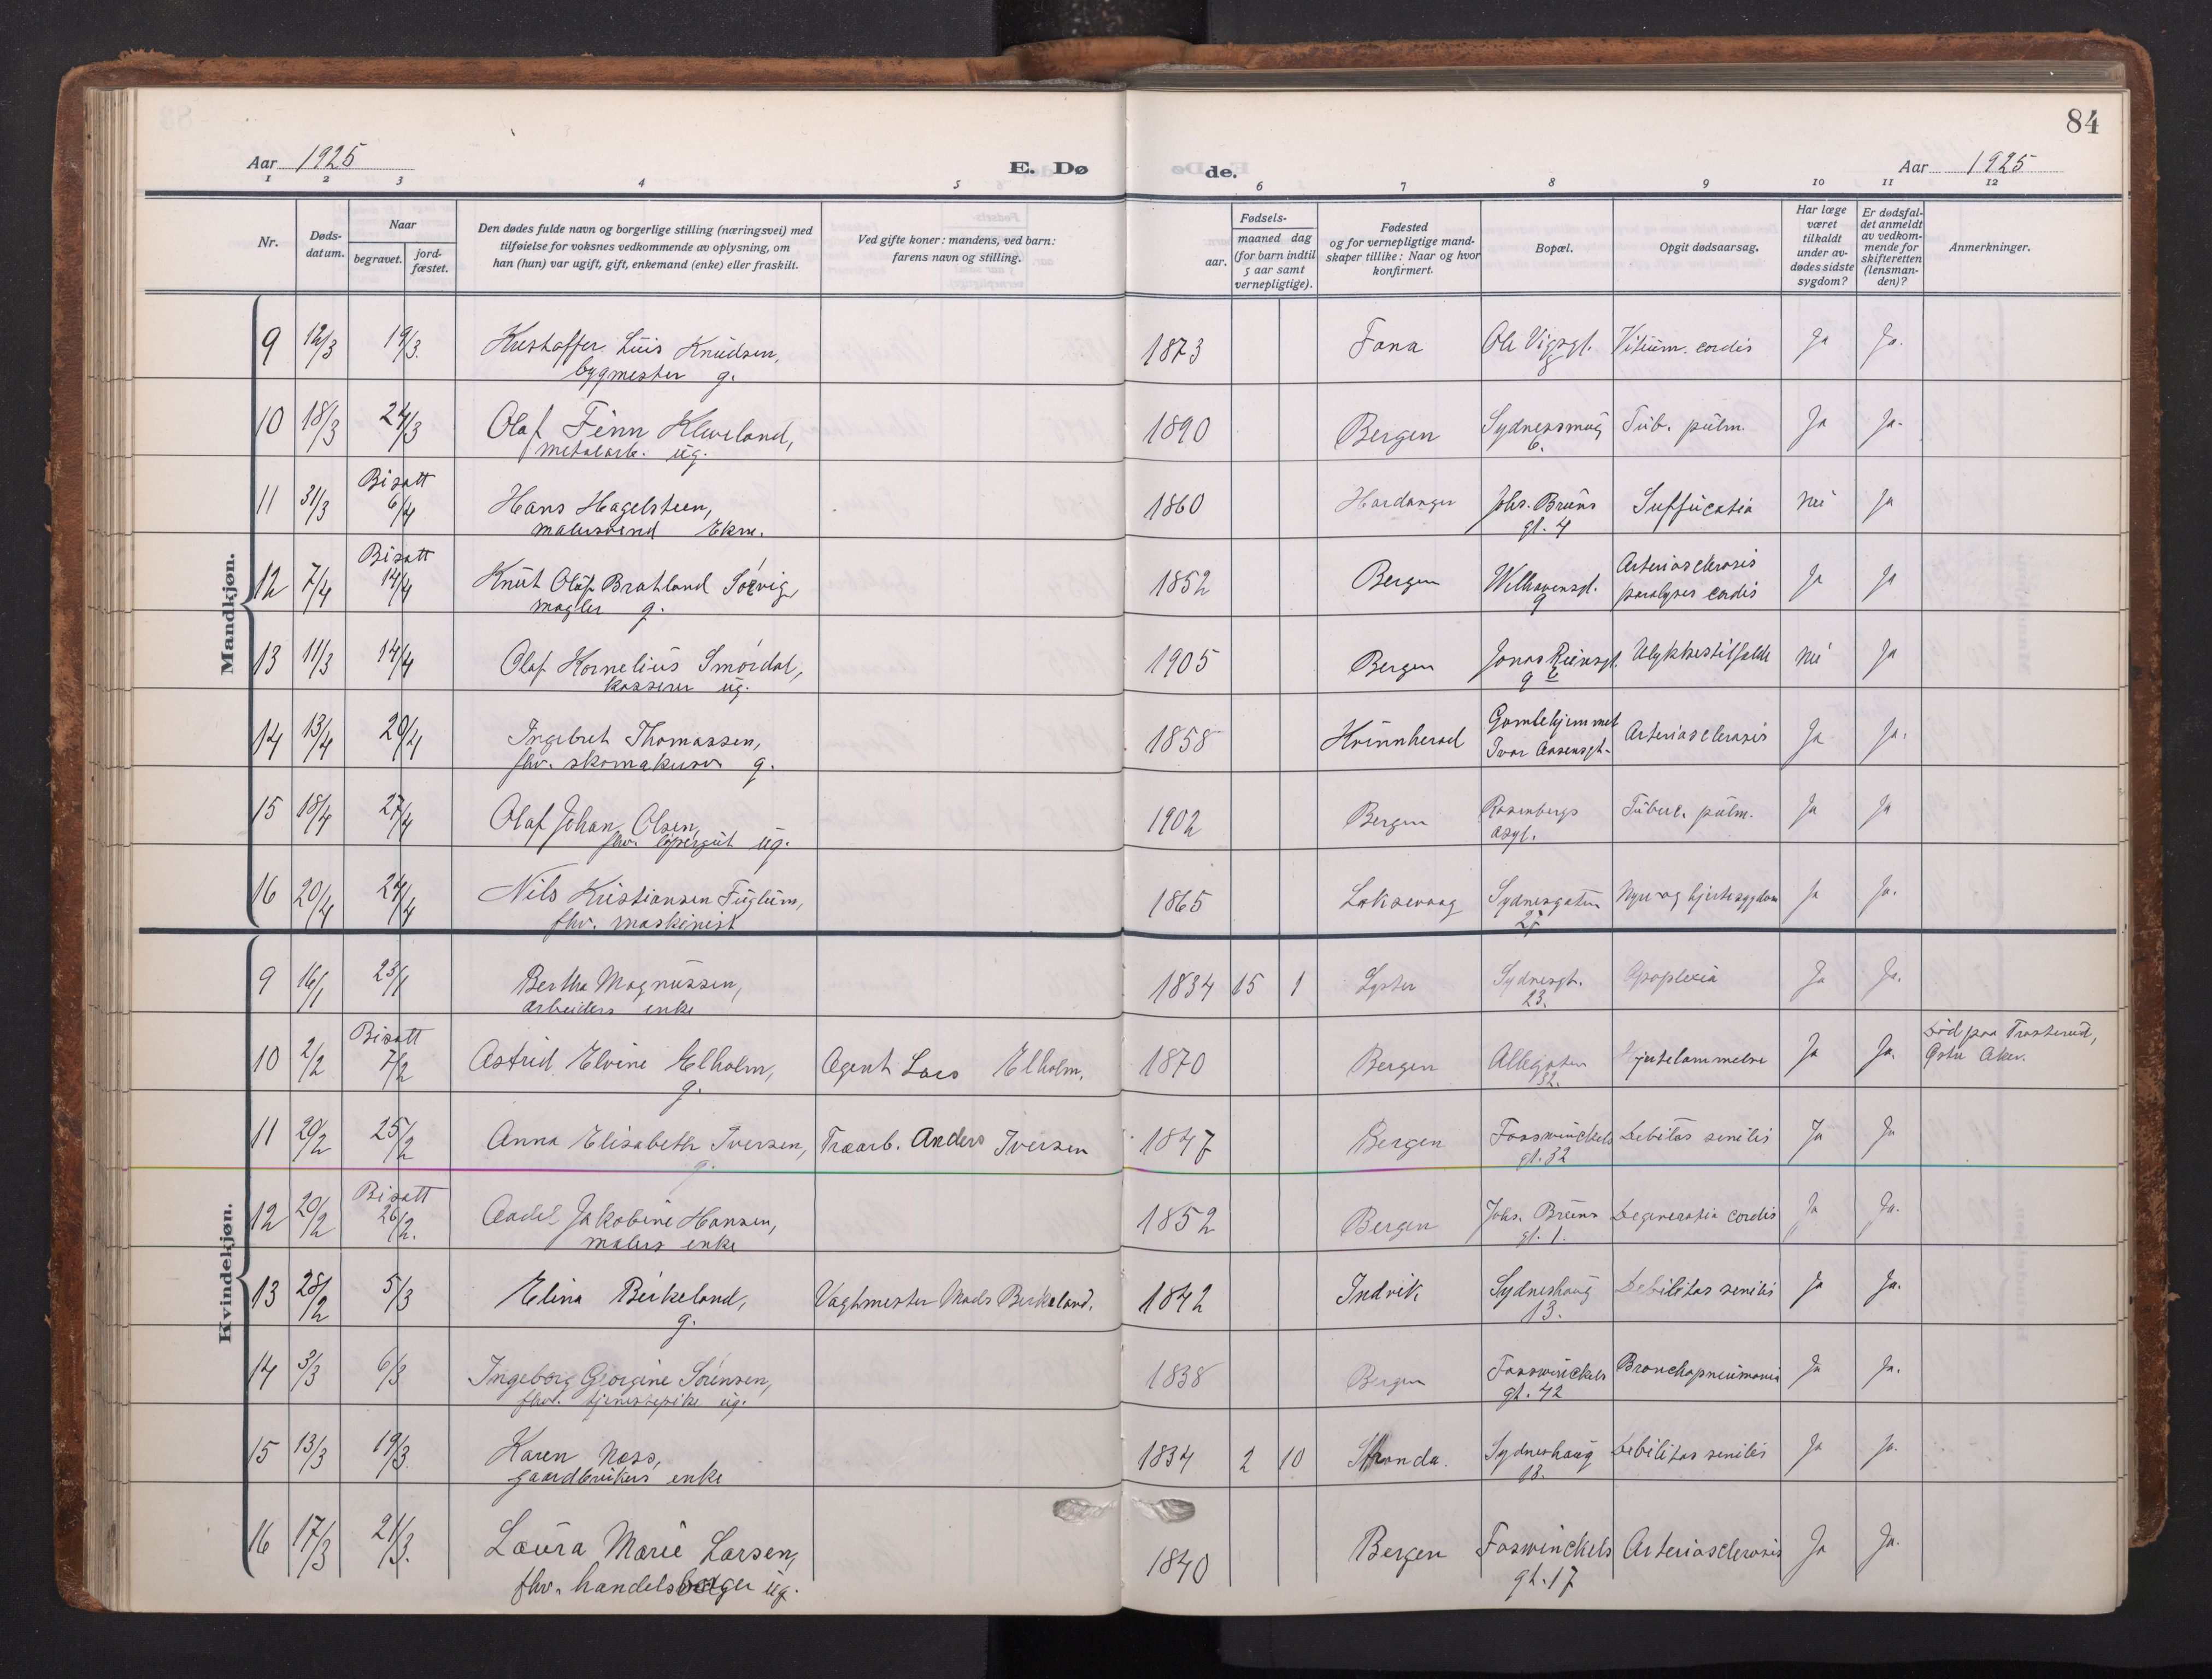 84
Aar 1925 E. Dø de. Aar 1925
1 2 3 4 5 6 7 8 9 10 11 12
Nr.
Døds-
datum.
Naar
begravet.
jord-
fæstet.
Den dødes fulde navn og borgerlige stilling (næringsvei) med
tilføielse for voksnes vedkommende av oplysning, om
han (hun) var ugift, gift, enkemand (enke) eller fraskilt.
Ved gifte koner: mandens, ved barn:
farens navn og stilling.
Fødsels-
aar.
maaned dag
(for barn indtil
5 aar samt
vernepligtige).
Fødested
og for vernepligtige mand-
skaper tillike: Naar og hvor
konfirmert.
Bopæl.
Opgit dødsaarsag.
Har læge
været
tilkaldt
under av-
dødes sidste
sygdom?
Er dødsfal-
det anmeldt
av vedkom-
mende for
skifteretten
(lensman-
den)?
Anmerkninger.
Mandkjøn.
9 12/3 19/3. Kristoffer Luis Knudsen, 1873 Fana Ole Vigsgt. Vitium. cordis Ja Ja.
bygmester g.
10 18/3 24/3 Olaf Finn Kleveland, 1890 Bergen Sydnessmug Tub. pulm. Ja Ja.
metalarb. ug. 6.
Bisatt
11 31/3 6/4 Hans Hagelsteen, 1860 Hardanger Johs. Bruns Suffucatio nei ja
malersvend Ekm. gt. 4
Bisatt Arteriosclerosis
12 7/4 14/4 Knut Olaf Bratland Sörvig, 1852 Bergen Welhavensgt. paralyses cordis Ja Ja
mægler g. 9
13 11/3 14/4 Olaf Kornelius Smördal, 1905 Bergen Jonas Reinsgt. Ulykkestilfelde nei Ja
kasserer ug. 9 b
Gamlehjemmet
14 13/4 20/4 Ingebret Thomassen, 1858 Kvinnherad Ivar Aasensgt. Arteriosclerosis Ja Ja.
fhv. skomaker g.
15 18/4 27/4 Olaf Johan Olsen, 1902 Bergen Rosenbergs Tuberc. pulm. Ja Ja
fhv. löpergut ug. asyl.
16 20/4 24/4 Nils Kristiansen Fuglum, 1865 Laksevaag Sydnesgaten Nyre og hjertesygdom Ja Ja.
fhv. maskinist 25
Kvindekjøn.
9 16/1 23/1 Bertha Magnussen, 1834 15 1 Lyster Sydnesgt. Apoplexia Ja Ja.
arbeiders enke 23.
Bisatt Död paa Trosterud,
10 2/2 7/2 Astrid Elvine Elholm, Agent Lars Elholm. 1870 Bergen Allegaten Hjertelammelse Ja Ja. Østre Aker.
g. 32.
11 20/2 25/2 Anna Elisabeth Iversen, Træarb. Anders Iversen 1847 Bergen Fosswinckels Debilitas senilis Ja Ja
g. gt. 32
Bisatt
12 20/2 26/2. Aadel Jakobine Hansen, 1852 Bergen Johs. Bruns Degeneratia cordis Ja Ja.
malers enke gt. 1.
13 28/2 5/3 Elina Birkeland, Vagtmester Mads Birkeland. 1842 Indvik Sydneshaug Debilitas senilis Ja Ja.
g. 13.
14 3/3 6/3 Ingeborg Georgine Sörensen, 1838 Bergen Fosswinckels Bronchopneumonia Ja Ja.
fhv. tjenestepike ug. gt. 42
15 13/3 19/3. Karen Næss, 1834 2 10 Stranda. Sydneshaug Debilitas senilis Ja Ja.
gaardbrukers enke 13.
16 17/3 21/3. Laura Marie Larsen, 1840 Bergen Foswinckels Arteriosclerosis Ja Ja.
fhv. handelsborger ug. gt. 17